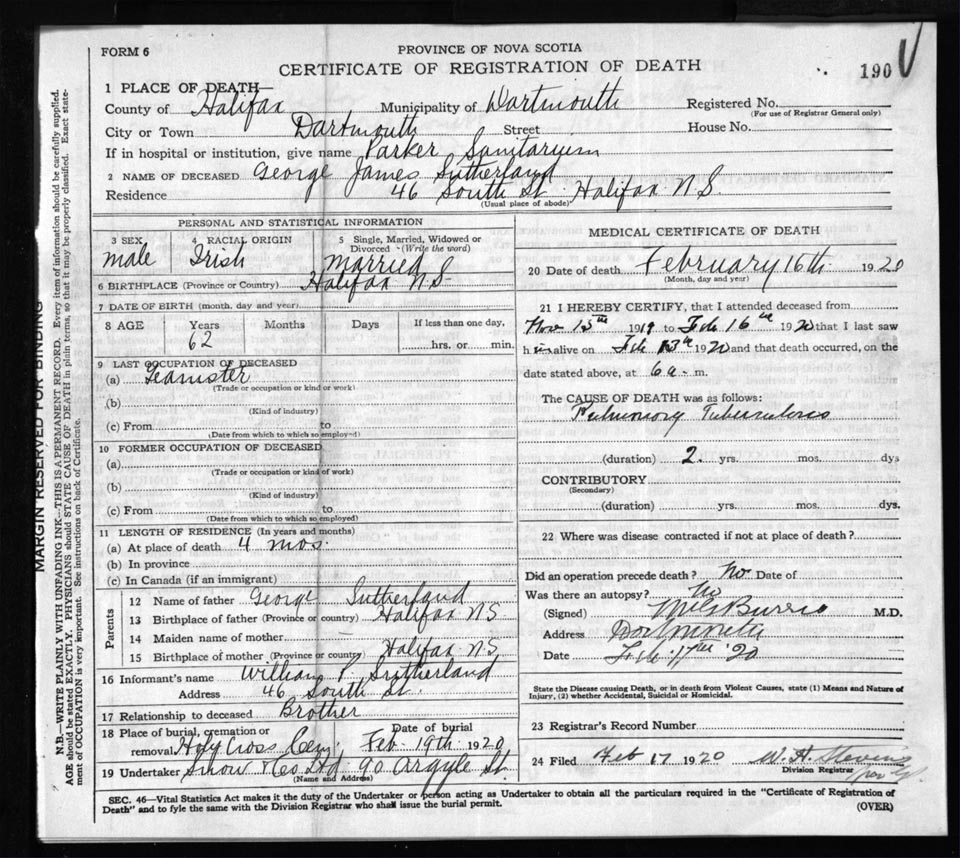 FORM 6
PROVINCE OF NOVA SCOTIA
CERTIFICATE OF REGISTRATION OF DEATH
190
1 PLACE OF DEATH—
County of Halifax Municipality of Dartmouth Registered No.
(For use of Registrar General only)
City or Town Dartmouth Street House No.
If in hospital or institution, give name Parker Sanitarium
2 NAME OF DECEASED George James Sutherland
Residence 46 South St. Halifax N.S.
(Usual place of abode)
PERSONAL AND STATISTICAL INFORMATION
3 SEX 4 RACIAL ORIGIN 5 Single, Married, Widowed or Divorced (Write the word)
male Irish married
6 BIRTHPLACE (Province or Country) Halifax N.S.
7 DATE OF BIRTH (month, day and year)
8 AGE Years Months Days If less than one day,
62 hrs. or min.
9 LAST OCCUPATION OF DECEASED
(a) Teamister
(Trade or occupation or kind or work)
(b)
(Kind of industry)
(c) From to
(Date from which to which so employed)
10 FORMER OCCUPATION OF DECEASED
(a)
(Trade or occupation or kind of work)
(b)
(Kind of industry)
(c) From to
(Date from which to which so employed)
11 LENGTH OF RESIDENCE (In years and months)
(a) At place of death 4 mos.
(b) In province
(c) In Canada (if an immigrant)
Parents
12 Name of father George Sutherland
13 Birthplace of father (Province or country) Halifax N S
14 Maiden name of mother —
15 Birthplace of mother (Province or country) Halifax N S
16 Informant's name William P. Sutherland
Address 46 South St.
17 Relationship to deceased Brother
18 Place of burial, cremation or removal Holy Cross Cem, Date of burial Feb. 19th 1920
19 Undertaker Snow & Co Ltd. 90 Argyle St.
(Name and Address)
MEDICAL CERTIFICATE OF DEATH
20 Date of death February 16th 1920
(Month, day and year)
21 I HEREBY CERTIFY, that I attended deceased from
Nov 15th 1919 to Feb 16th 1920 that I last saw
him alive on Feb 13th 1920 and that death occurred, on the
date stated above, at 6 a. m.
The CAUSE OF DEATH was as follows:
Pulmonory Tuberculosis
(duration) 2. yrs. mos. dys
CONTRIBUTORY
(Secondary)
(duration) yrs. mos. dys.
22 Where was disease contracted if not at place of death?
Did an operation precede death? No Date of
Was there an autopsy? No
(Signed) M.D.
Address
Date Feb. 17th '20
State the Disease causing Death, or in death from Violent Causes, state (1) Means and Nature of Injury, (2) whether Accidental, Suicidal or Homicidal.
23 Registrar's Record Number
24 Filed Feb 17 1920
Division Registrar
SEC. 46—Vital Statistics Act makes it the duty of the Undertaker or person acting as Undertaker to obtain all the particulars required in the "Certificate of Registration of
Death" and to fyle the same with the Division Registrar who shall issue the burial permit.
(OVER)
MARGIN RESERVED FOR BINDING
N.B.—WRITE PLAINLY WITH UNFADING INK—THIS IS A PERMANENT RECORD. Every item of information should be carefully supplied.
AGE should be stated EXACTLY. PHYSICIANS should STATE CAUSE OF DEATH in plain terms, so that it may be properly classified. Exact state-
ment of OCCUPATION is very important. See instructions on back of Certificate.